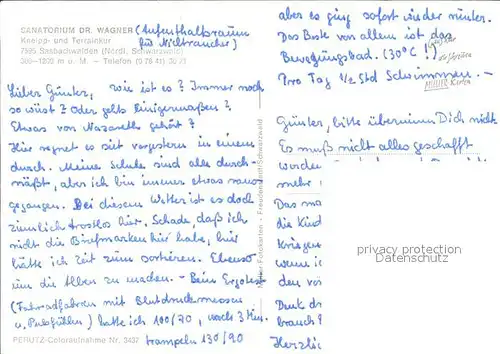 SANATORIUM DR. WAGNER (Aufenthaltsraum
Kneipp- und Terrainkur für Nichtraucher)
7595 Sasbachwalden (Nördl. Schwarzwald)
300–1205 m ü. M. – Telefon (0 78 41)
Lieber Günter, wie ist es? Immer noch
so wüst? Oder gehts einigermaßen?
Etwas von Nazareth gehört?
Hier regnet es seit vorgestern in einem
durch. Meine Schuhe sind alle durch-
näßt, aber ich bin immer etwas raus
gegangen. Bei diesem Wetter ist es doch
ziemlich trostlos hier. Schade, daß ich
nicht die Briefmarken hier habe, hier
hätte ich Zeit zum sortieren. Ebenso
um die Alben zu machen. – Beim Ergotest
(Fahrradfahren mit Blutdruckmessen
u. Pulsfühlen) hatte ich 100/70, nach 3 Min.
trampeln 130/90
PERUTZ-Coloraufnahme Nr. 3437
Freudenstadt/Schwarzwald
aber es ging sofort wieder runter.
Das Beste von allem ist das
Bewegungsbad. (30°C!)
Pro Tag 1/2 Std Schwimmen. –
Günter, bitte übernimm Dich nicht
Es muß nicht alles geschafft
werden
mehr
Das
die Kind
Kriegen
wenn i
den vor
Denk d
brauch
Herzlic
privacy protection
Datenschutz